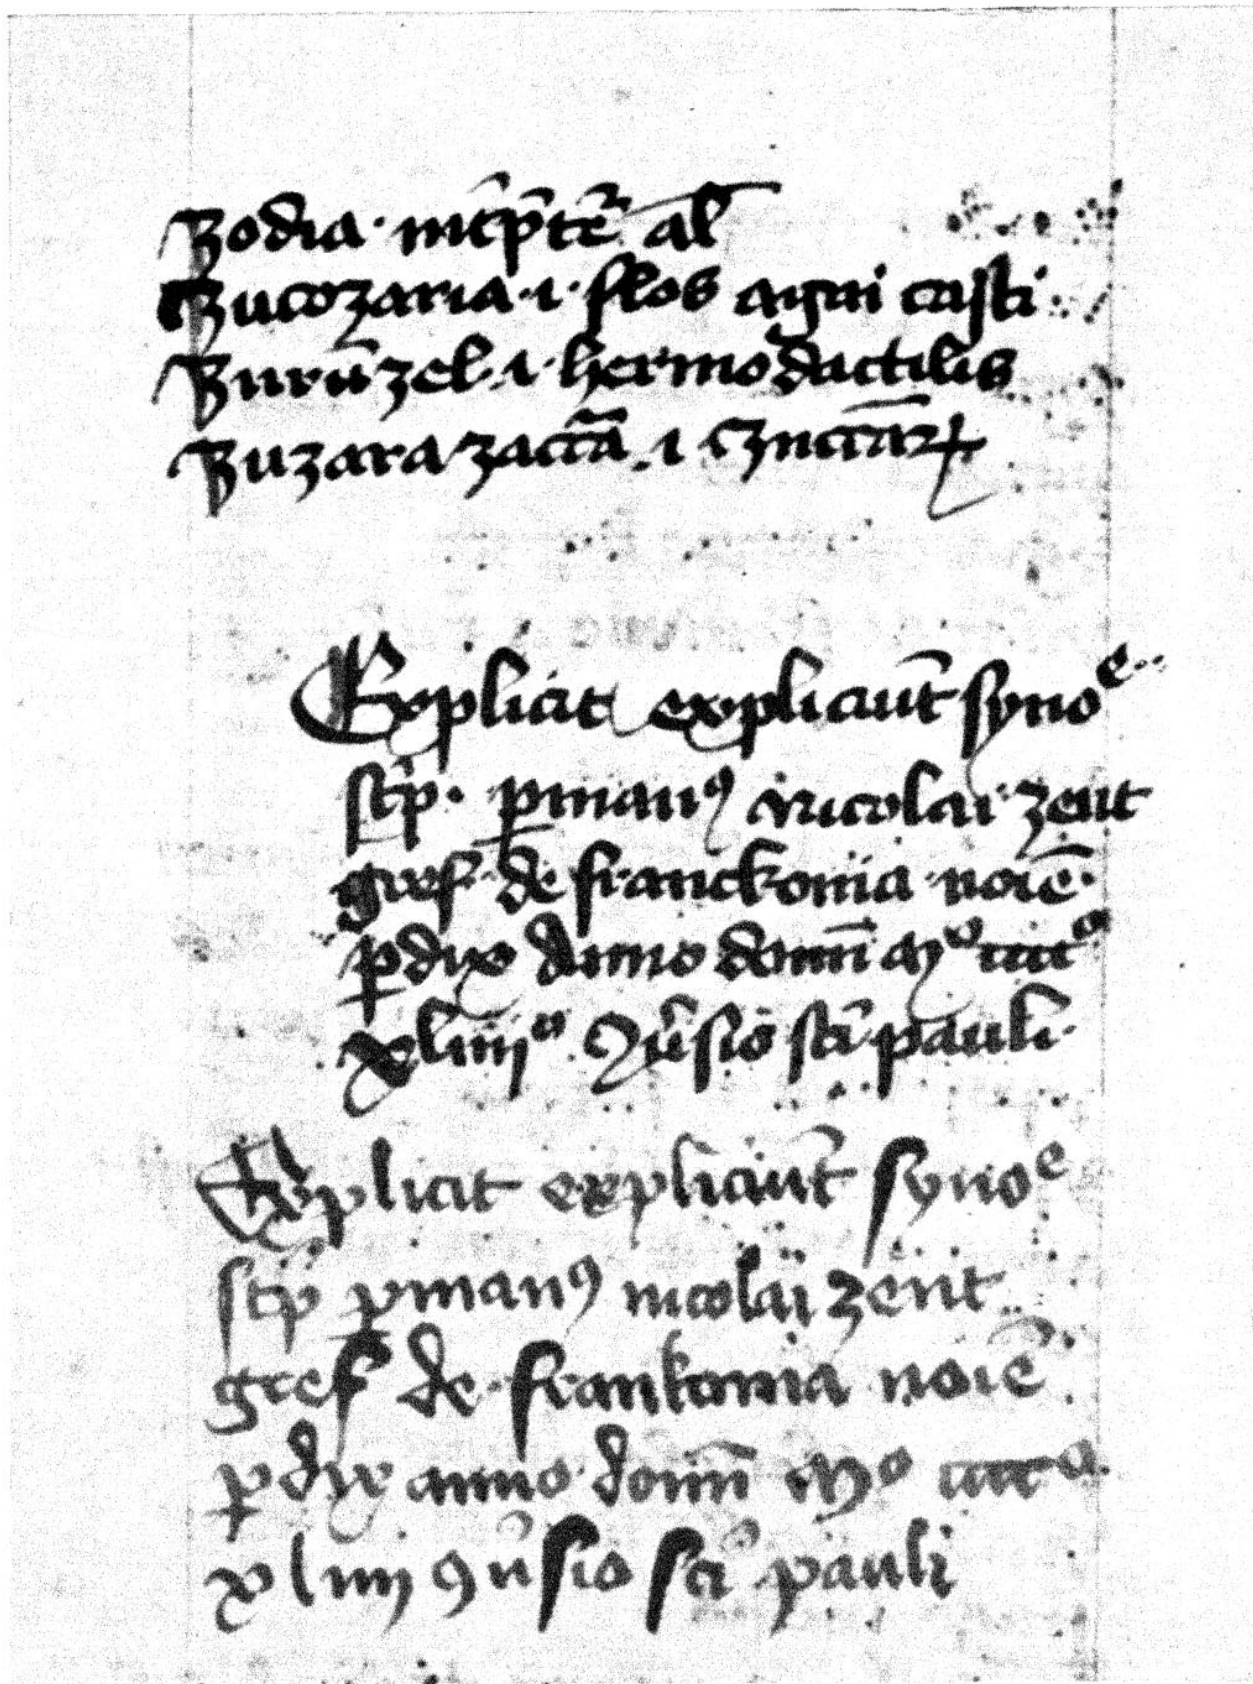 Zodia · int̄p̄tr̄ al̄
Zucozaria · i · flos agni casti ·
Zurūzel · i · hermodactilis
Zuzara zacc̄a · i
Explicit expliciūt synoᵉ
sc̄p · ꝑmanꝰ Nicolai zent
gref · de franckonia · noīe ·
ꝑdix Anno domī Mᵒ ccccᵒ
xliiijᵒ ꝯv̄sio sc̄i pauli ·
Explicit expliciūt synoᵉ
sc̄p ꝑmanꝰ nicolai zent
gref de · frankonia noīe
ꝑdix anno · domī Mᵒ ccccᵒ
xliiij ꝯv̄sio sc̄i pauli